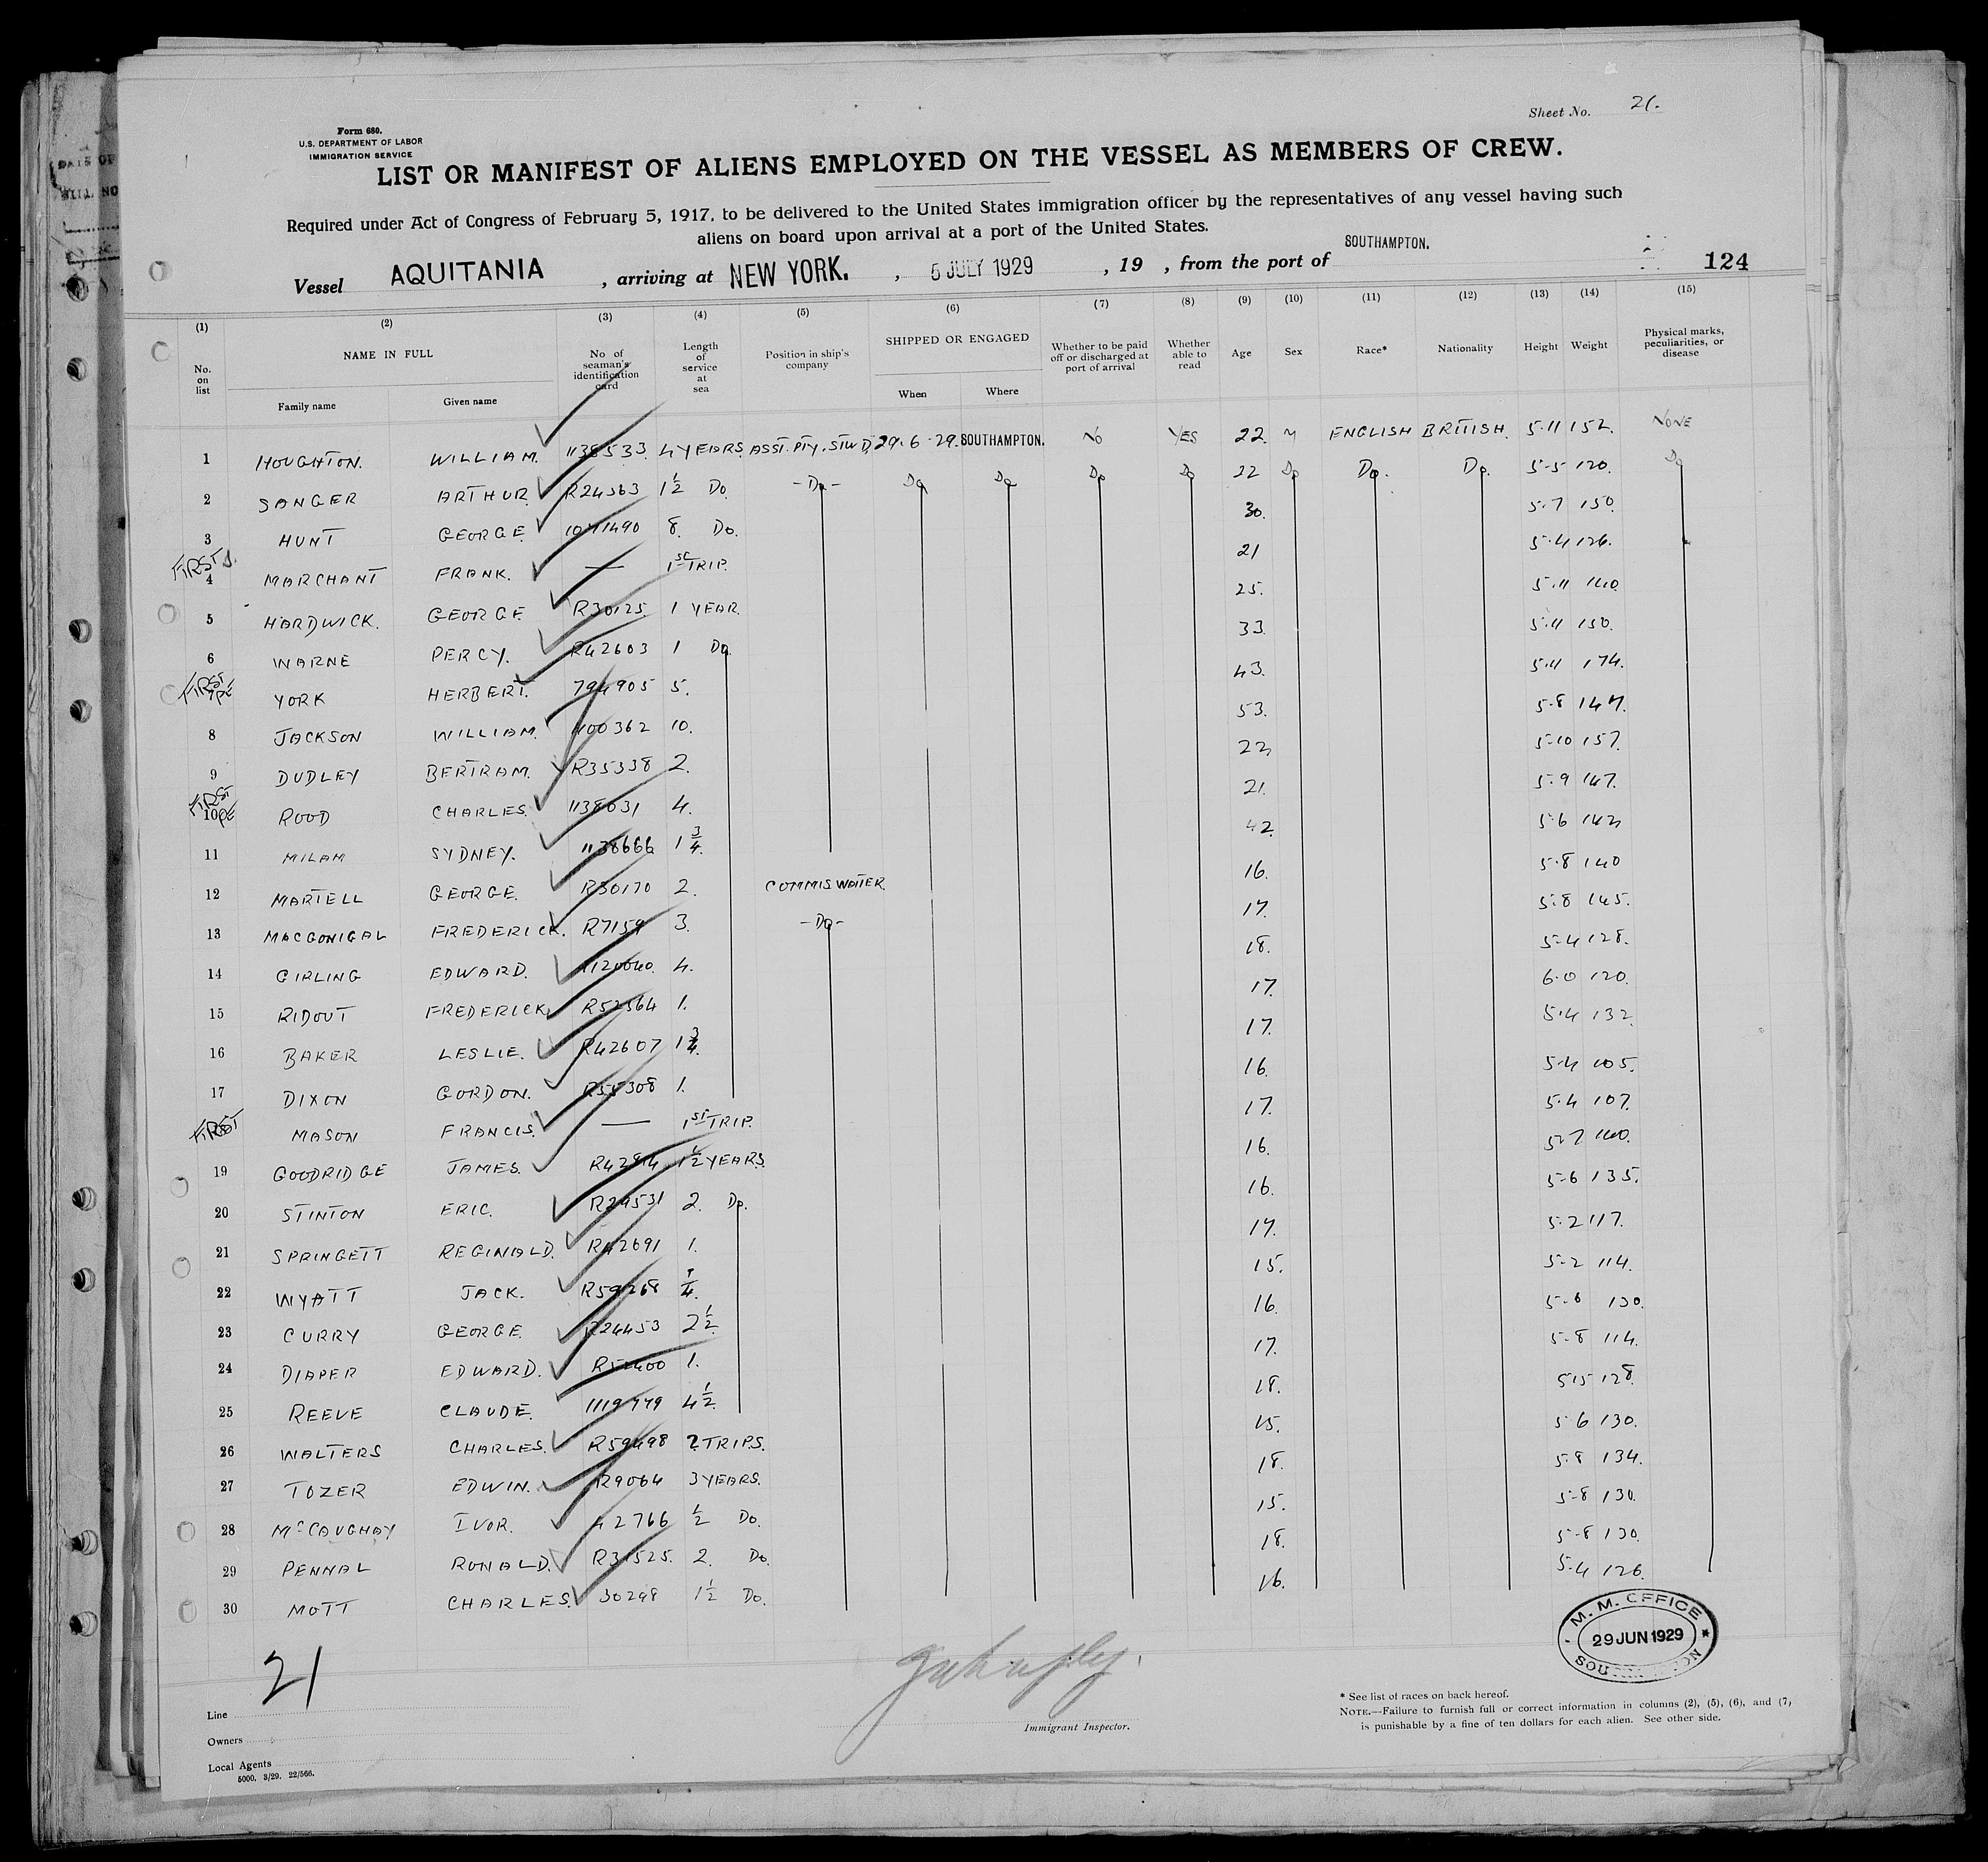 Sheet No. 21.
Form 680.
U.S. DEPARTMENT OF LABOR
IMMIGRATION SERVICE
LIST OR MANIFEST OF ALIENS EMPLOYED ON THE VESSEL AS MEMBERS OF CREW.
Required under Act of Congress of February 5, 1917, to be delivered to the United States immigration officer by the representatives of any vessel having such
aliens on board upon arrival at a port of the United States.
Vessel AQUITANIA , arriving at NEW YORK. , 5 JULY 1929 , 19 , from the port of SOUTHAMPTON. 124
(1) (2) (3) (4) (5) (6) (7) (8) (9) (10) (11) (12) (13) (14) (15)
No. on list NAME IN FULL Family name Given name No. of seaman's identification card Length of service at sea Position in ship's company SHIPPED OR ENGAGED When Where Whether to be paid off or discharged at port of arrival Whether able to read Age Sex Race* Nationality Height Weight Physical marks, peculiarities, or disease
1 HOUGHTON. WILLIAM. 1135533 4 YEARS. ASST. PTY. STWD. 29-6-29. SOUTHAMPTON. NO YES 22. M ENGLISH BRITISH. 5-11 152. NONE
2 SANGER ARTHUR. R24563 1½ Do. -Do- Do Do Do Do 22 Do Do. Do. 5-5 120. Do
3 HUNT GEORGE. 1071490 8. Do. 30. 5-7 150.
FIRST
4 MARCHANT FRANK. — 1ST TRIP. 21 5-4 126.
5 HARDWICK. GEORGE. R30125 1 YEAR. 25. 5-11 140.
6 WARNE PERCY. R42603 1 Do. 33. 5-11 150.
FIRST
7 YORK HERBERT. 794905 5. 43. 5-11 174.
8 JACKSON WILLIAM. 400362 10. 53. 5-8 147.
9 DUDLEY BERTRAM. R35338 2. 22. 5-10 157.
FIRST
10 ROOD CHARLES. 1138031 4. 21. 5-9 147.
11 MILAM SYDNEY. 1138666 1¾. 42. 5-6 142.
12 MARTELL GEORGE. R30170 2. COMMIS WAITER. 16. 5-8 140
13 MACGONIGAL FREDERICK. R7159 3. -Do- 17. 5-8 145.
14 GIRLING EDWARD. 1120040. 4. 18. 5-4 128.
15 RIDOUT FREDERICK. R52564 1. 17. 6-0 120.
16 BAKER LESLIE. R42607 1¾. 17. 5-4 132.
17 DIXON GORDON. R55308 1. 16. 5-4 105.
FIRST MASON FRANCIS. — 1ST TRIP. 17. 5-4 107.
19 GOODRIDGE JAMES. R42914 1½ YEARS. 16. 5-7 140.
20 STINTON ERIC. R29531 2. Do. 16. 5-6 135.
21 SPRINGETT REGINALD. R42691 1. 17. 5-2 117.
22 WYATT JACK. R59268 15. 5-2 114.
23 CURRY GEORGE. R24453 2½. 16. 5-6 130.
24 DIAPER EDWARD. R52400 1. 17. 5-8 114.
25 REEVE CLAUDE. 1119779 4½. 18. 5-5 128.
26 WALTERS CHARLES. R59498 2 TRIPS. 15. 5-6 130.
27 TOZER EDWIN. R9064 3 YEARS. 18. 5-8 134.
28 McCAUGHAY IVOR. 42766 ½ Do. 15. 5-8 130.
29 PENNAL RONALD. R31525. 2. Do. 18. 5-8 130.
30 MOTT CHARLES. 30298 1½ Do. 16. 5-4 126.
M. M. OFFICE
29 JUN 1929
21
Line
Owners
Local Agents
5000. 3/29. 22/566.
Immigrant Inspector.
* See list of races on back hereof.
NOTE.—Failure to furnish full or correct information in columns (2), (5), (6), and (7),
is punishable by a fine of ten dollars for each alien. See other side.